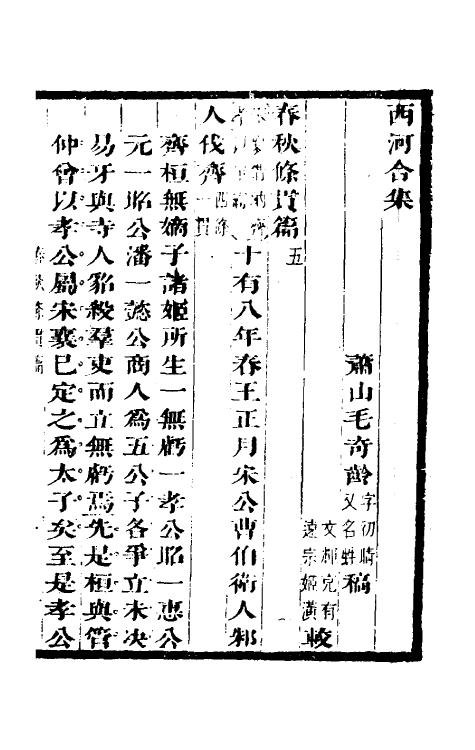 西河合集
蕭山毛奇齡字初晴又名甡稿
文輝充有
遠宗姬潢較
春秋條貫篇五
十有八年春王正月宋公曹伯衛人邾
人伐齊西條一貫
齊桓無嫡子諸姬所生一無虧一孝公昭一惠公
元一昭公潘一懿公商人爲五公子各爭立未決
易牙與寺人貂殺羣吏而立無虧焉先是桓與管
仲曾以孝公屬宋襄已定之爲太子矣至是孝公
春秋條貫篇